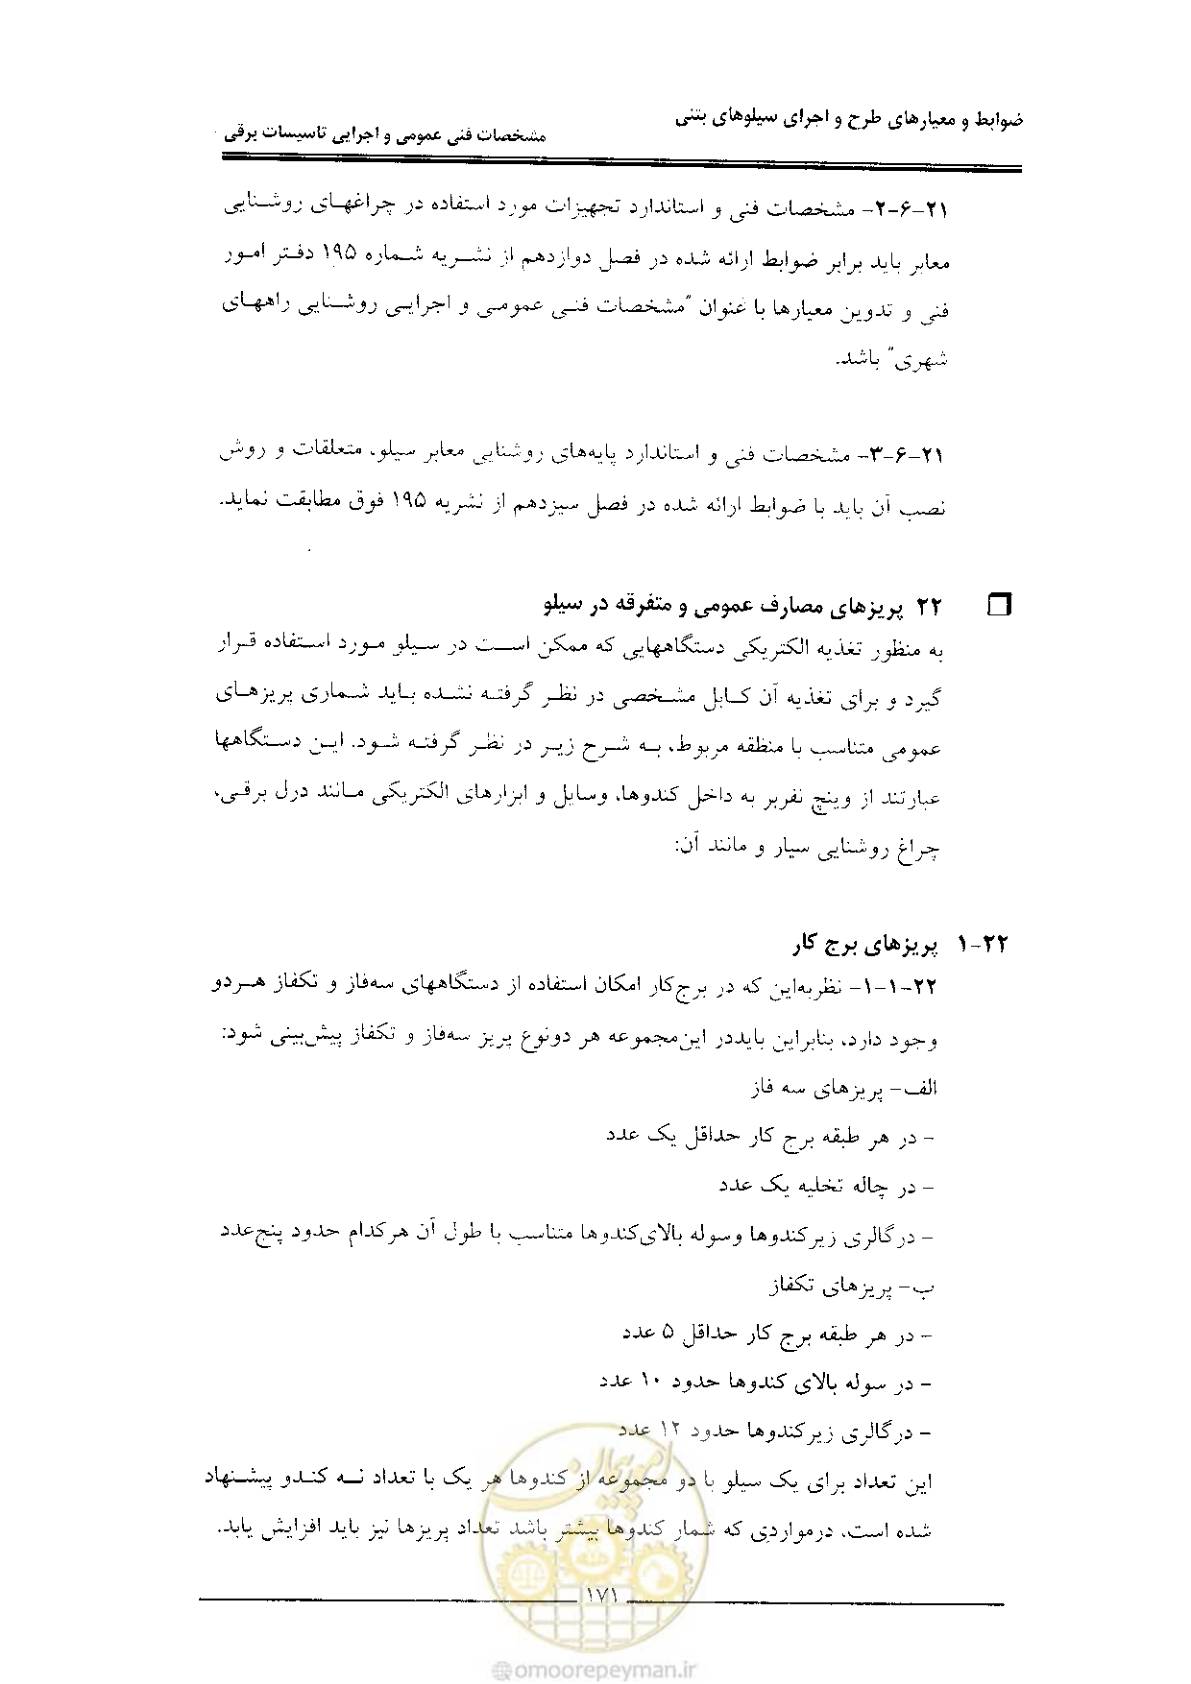 ضوابط و معیارهای طرح و اجرای سیلوهای بتنی
مشخصات فنی عمومی و اجرایی تاسیسات برقی
۲۱-۶-۲- مشخصات فنی و استاندارد تجهیزات مورد استفاده در چراغهای روشنایی
معابر باید برابر ضوابط ارائه شده در فصل دوازدهم از نشریه شماره ۱۹۵ دفتر امور
فنی و تدوین معیارها با عنوان "مشخصات فنی عمومی و اجرایی روشنایی راههای
شهری" باشد.
۲۱-۶-۳- مشخصات فنی و استاندارد پایه‌های روشنایی معابر سیلو، متعلقات و روش
نصب آن باید با ضوابط ارائه شده در فصل سیزدهم از نشریه ۱۹۵ فوق مطابقت نماید.
۲۲ پریزهای مصارف عمومی و متفرقه در سیلو
به منظور تغذیه الکتریکی دستگاههایی که ممکن است در سیلو مورد استفاده قرار
گیرد و برای تغذیه آن کابل مشخصی در نظر گرفته نشده باید شماری پریزهای
عمومی متناسب با منطقه مربوط، به شرح زیر در نظر گرفته شود. این دستگاهها
عبارتند از وینچ نفربر به داخل کندوها، وسایل و ابزارهای الکتریکی مانند درل برقی،
چراغ روشنایی سیار و مانند آن:
۲۲-۱ پریزهای برج کار
۲۲-۱-۱- نظربه‌این که در برج‌کار امکان استفاده از دستگاههای سه‌فاز و تکفاز هردو
وجود دارد، بنابراین بایددر این‌مجموعه هر دونوع پریز سه‌فاز و تکفاز پیش‌بینی شود:
الف- پریزهای سه فاز
- در هر طبقه برج کار حداقل یک عدد
- در چاله تخلیه یک عدد
- درگالری زیرکندوها وسوله بالای‌کندوها متناسب با طول آن هرکدام حدود پنج‌عدد
ب- پریزهای تکفاز
- در هر طبقه برج کار حداقل ۵ عدد
- در سوله بالای کندوها حدود ۱۰ عدد
- درگالری زیرکندوها حدود ۱۲ عدد
این تعداد برای یک سیلو با دو مجموعه از کندوها هر یک با تعداد نه کندو پیشنهاد
شده است، درمواردی که شمار کندوها بیشتر باشد تعداد پریزها نیز باید افزایش یابد.
۱۷۱
امور پیمان
@omoorepeyman.ir